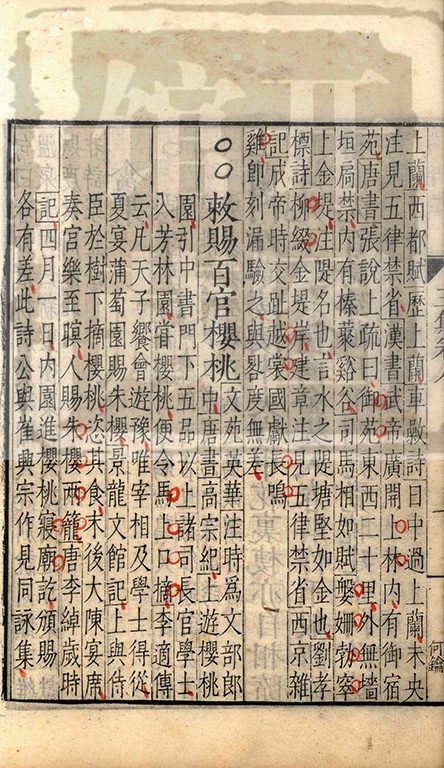 上蘭西都賦歷上蘭車𣪠詩日中過上蘭未央
注見五律禁省漢書武帝廣開上林內有御宿
苑唐書張說上疏曰御苑東西二十里外無墻
垣扃禁內有榛藂谿谷司馬相如賦媻姍勃窣
上金堤注隄名也言水之隄塘堅如金也劉孝
標詩柳綴金堤岸建章注見五律禁省西京雜
記成帝時交趾越裳國獻長鳴
雞卽刻漏驗之與晷度無差
○○敕賜百官櫻桃
文苑英華注時爲文部郎
中唐書高宗紀上遊櫻桃
園引中書門下五品以上諸司長官學士
入芳林園嘗櫻桃便令馬上口摘李適傳
云凡天子饗會遊豫唯宰相及學士得從
夏宴蒲萄園賜朱櫻景龍文館記上與侍
臣於樹下摘櫻桃恣其食末後大陳宴席
奏宮樂至暝人賜朱櫻兩籠唐李綽歲時
記四月一日內園進櫻桃寢廟訖頒賜
各有差此詩公與崔興宗作見同詠集
何鑰